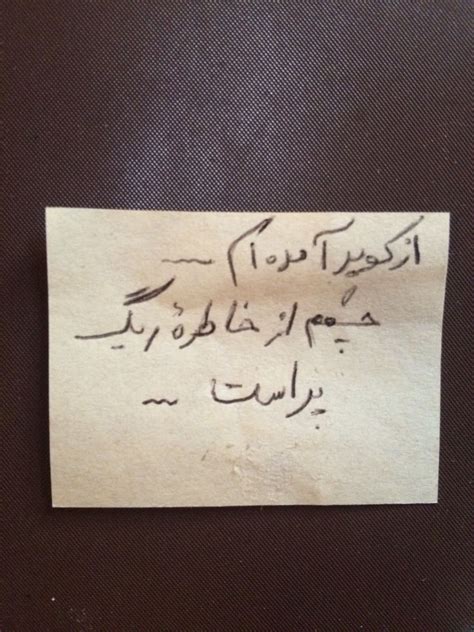 از کویر آمده ام ~
چشمم از خاطرهٔ ریگ
پر است ~